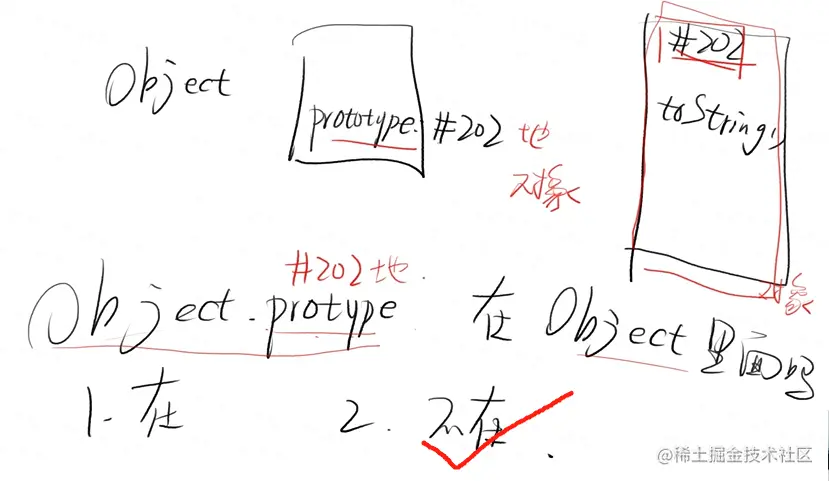 #202
Object
toString()
prototype. #202 地
对象
#202 地
对象
Object.protype 在 Object 里面吗
1. 在 2. 不在.
@稀土掘金技术社区